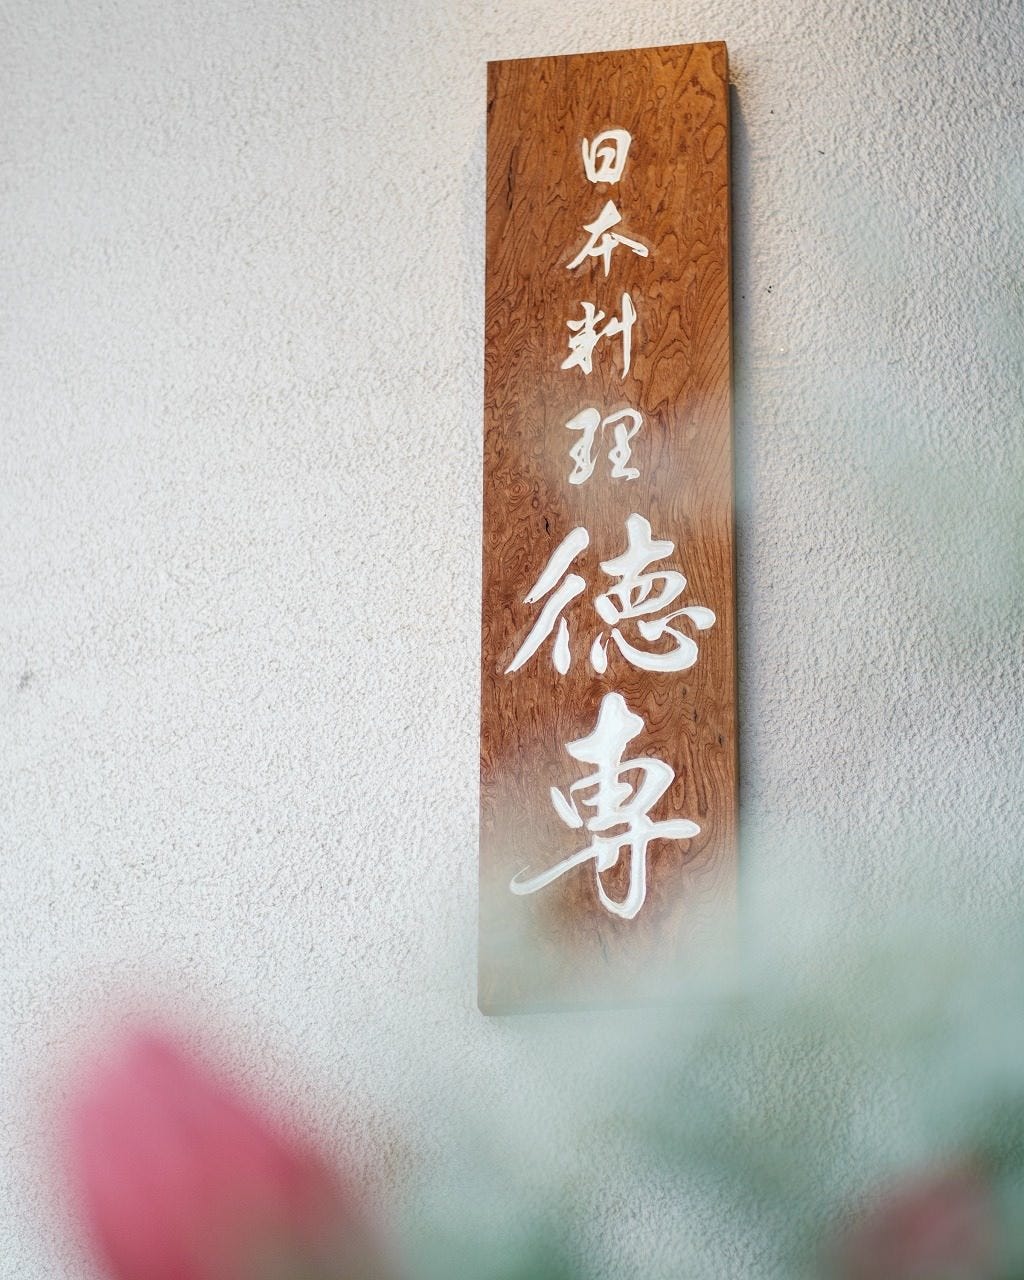 日本料理徳専